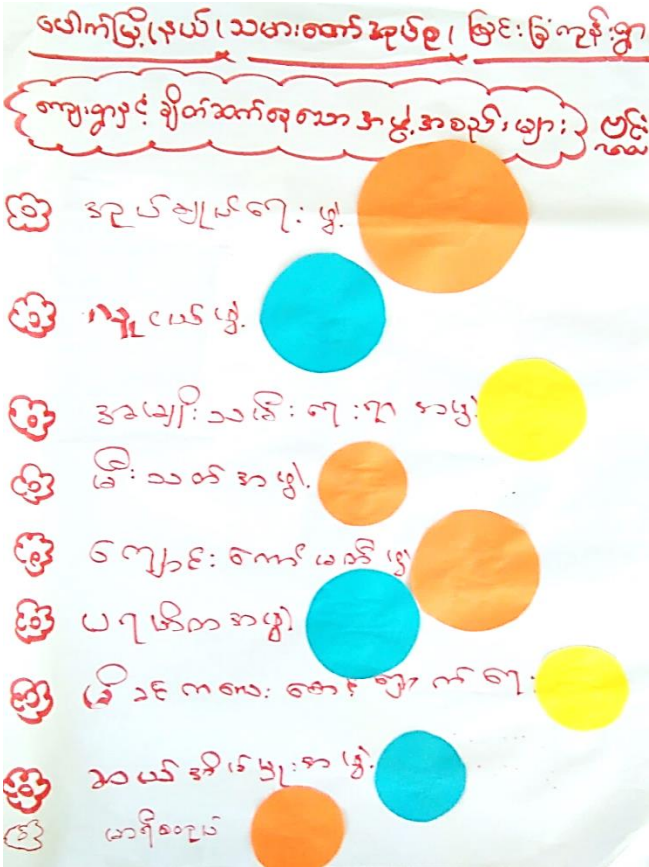 ပေါက်မြို့နယ်၊ သမားတော်အုပ်စု၊ မြင်းခြံကုန်းရွာ
ကျေးရွာနှင့် ချိတ်ဆက်နေသော အဖွဲ့အစည်းများ
အုပ်ချုပ်ရေးဖွဲ့
လူငယ်ဖွဲ့
အမျိုးသမီးရေးရာ အဖွဲ့
မီးသတ်အဖွဲ့
ကျောင်းကော်မတီဖွဲ့
ပရဟိတအဖွဲ့
မိခင်ကလေး စောင့်ရှောက်ရေး
ဆယ်အိမ်မှူးအဖွဲ့